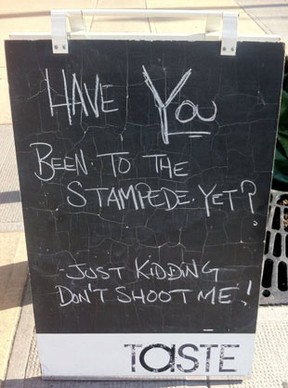 HAVE YOU
BEEN TO THE
STAMPEDE YET?
JUST KIDDING
DON'T SHOOT ME!
TaSTE